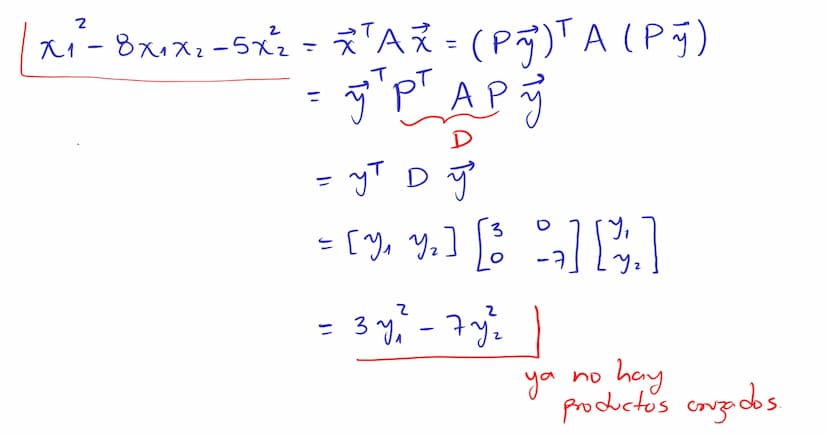 x₁² - 8x₁x₂ - 5x₂² = x⃗ᵀAx⃗ = (Py⃗)ᵀ A (Py⃗)
= y⃗ᵀ Pᵀ A P y⃗
D
= yᵀ D y⃗
= [y₁ y₂] [3 0; 0 -7] [y₁; y₂]
= 3y₁² - 7y₂²
ya no hay
productos cruzados.